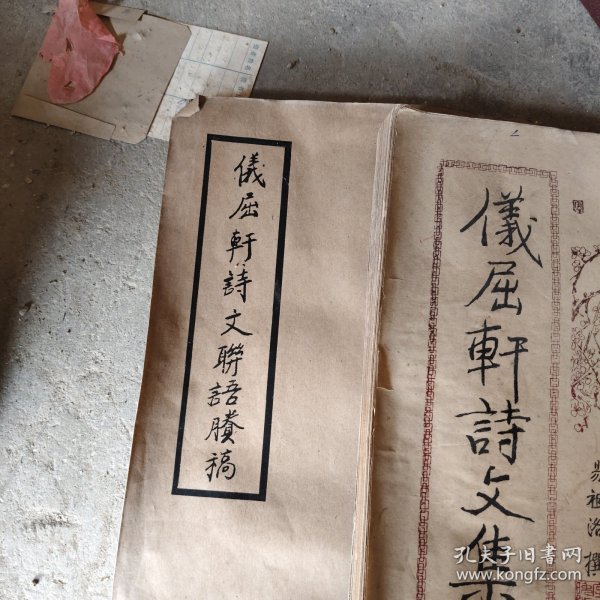 儀屈軒詩文聯語賸稿
儀屈軒詩文集
易祖洛撰
孔夫子旧书网
www.kongfz.com